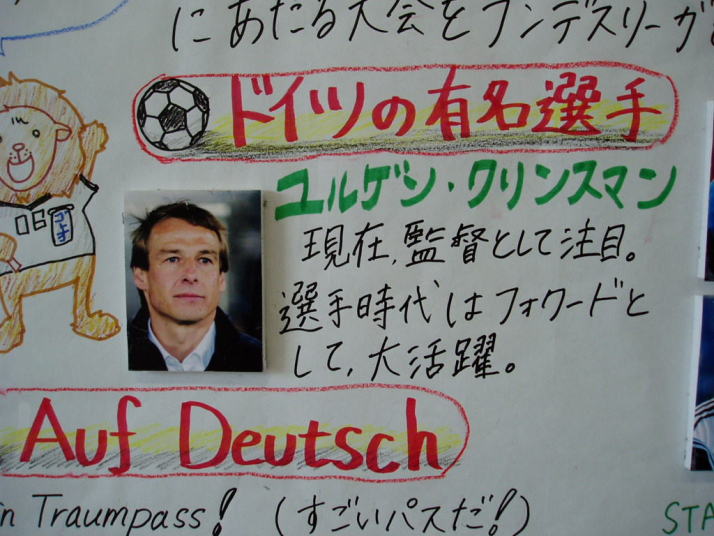 にあたる大会をブンデスリーガ
ドイツの有名選手
ユルゲン・クリンスマン
現在、監督として注目。
選手時代はフォワードと
して、大活躍。
06
Auf Deutsch
in Traumpass! (すごいパスだ!)
STA